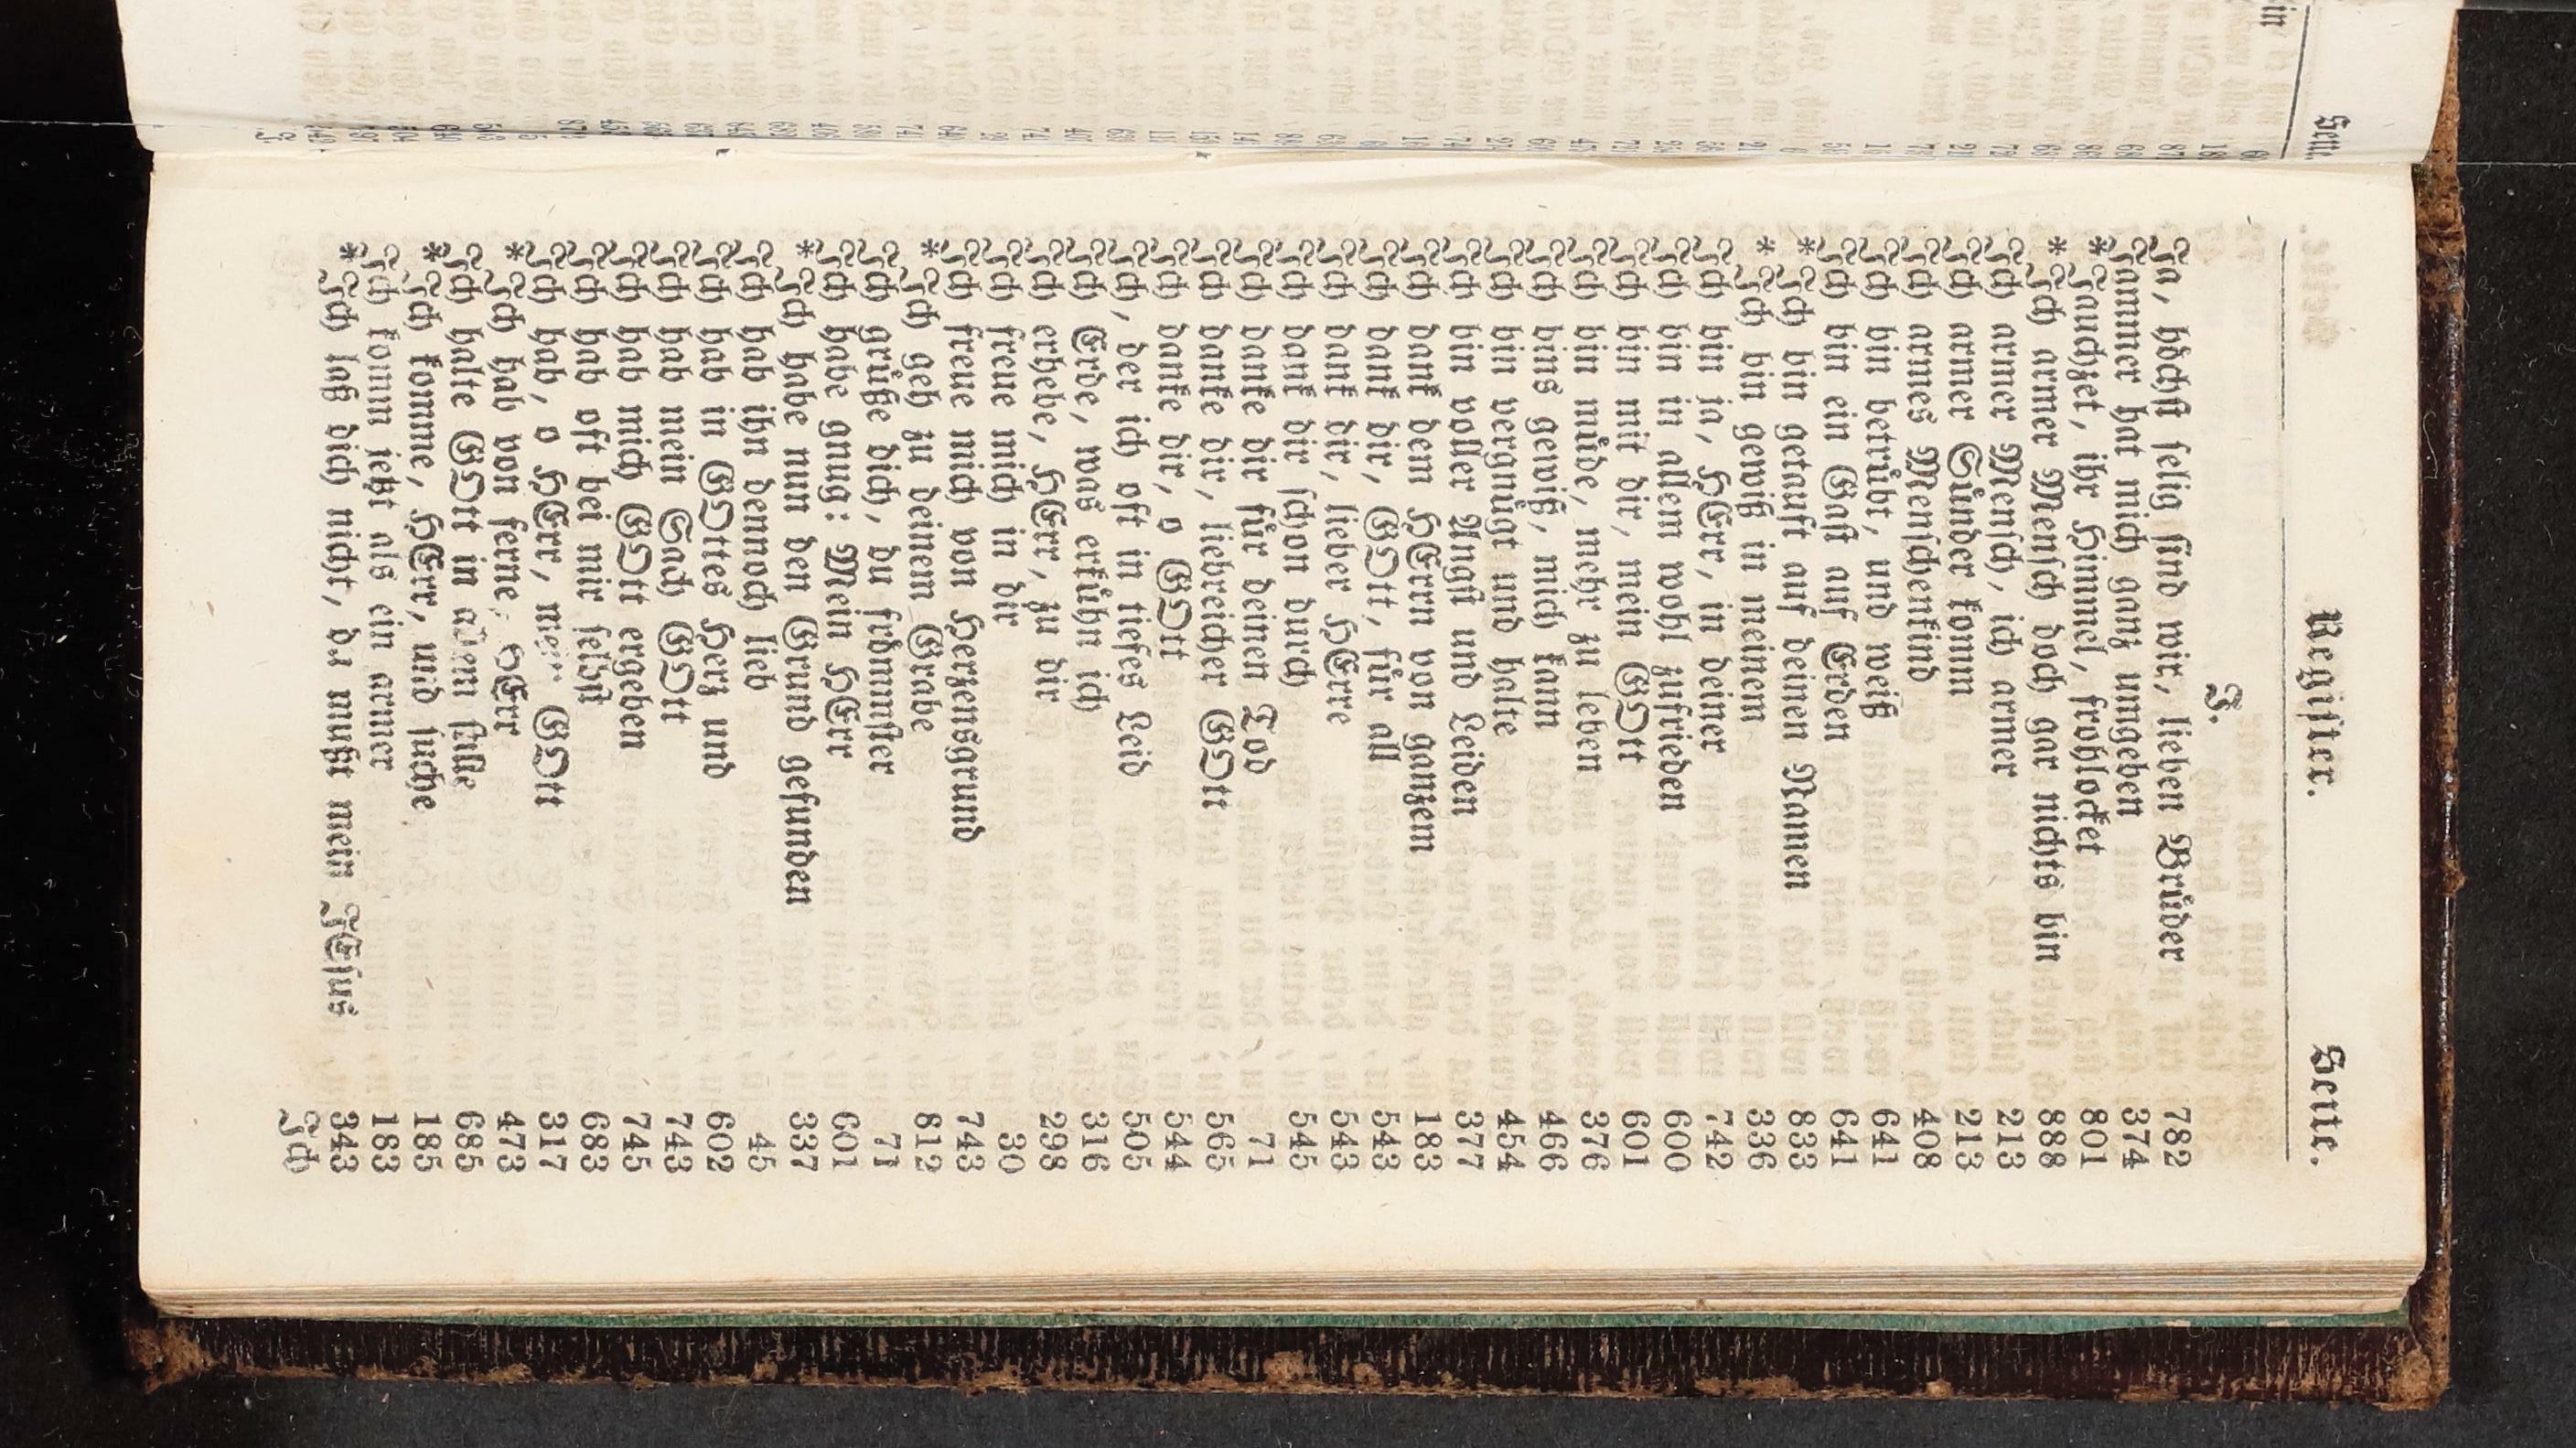 Register.
Seite.
J.
Ja, höchst selig sind wir, lieben Brüder 782
Jammer hat mich ganz umgeben 374
*Jauchzet, ihr Himmel, frohlocket 801
*Ich armer Mensch doch gar nichts bin 888
Ich armer Mensch, ich armer 213
Ich armer Sünder komm 213
Ich armes Menschenkind 408
Ich bin betrübt, und weiß 641
Ich bin ein Gast auf Erden 641
*Ich bin getauft auf deinen Namen 833
*Ich bin gewiß in meinem 336
Ich bin ja, HErr, in deiner 742
Ich bin in allem wohl zufrieden 600
Ich bin mit dir, mein GOtt 601
Ich bin müde, mehr zu leben 376
Ich bins gewiß, mich kann 466
Ich bin vergnügt und halte 454
Ich bin voller Angst und Leiden 377
Ich dank dem HErrn von ganzem 183
Ich dank dir, GOtt, für all 543
Ich dank dir, lieber HErre 543
Ich dank dir schon durch 545
Ich danke dir für deinen Tod 71
Ich danke dir, liebreicher GOtt 565
Ich danke dir, o GOtt 544
Ich, der ich oft in tiefes Leid 505
Ich Erde, was erkühn ich 316
Ich erhebe, HErr, zu dir 298
Ich freue mich in dir 30
Ich freue mich von Herzensgrund 743
*Ich geh zu deinem Grabe 812
Ich grüße dich, du frömmster 71
Ich habe gnug: Mein HErr 601
*Ich habe nun den Grund gefunden 337
Ich hab ihn dennoch lieb 45
Ich hab in GOttes Herz und 602
Ich hab mein Sach GOtt 743
Ich hab mich GOtt ergeben 745
Ich hab oft bei mir selbst 683
Ich hab, o HErr, GOtt 317
*Ich hab von ferne, HErr 473
Ich halte GOtt in allem stille 685
*Ich komme, HErr, und suche 185
Ich komm jetzt als ein armer 183
*Ich laß dich nicht, du mußt mein JEsus 343
Ich